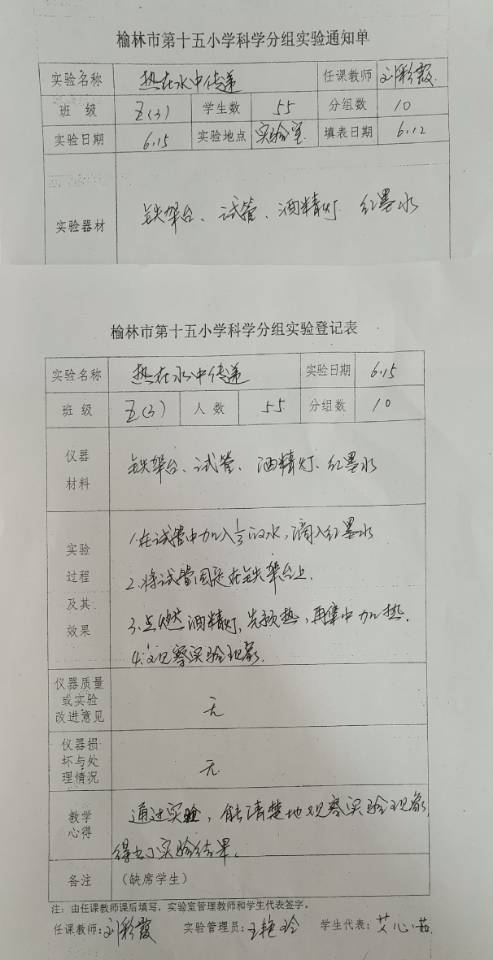 榆林市第十五小学科学分组实验通知单
实验名称 热在水中传递 任课教师 刘彩霞
班 级 五(3) 学生数 55 分组数 10
实验日期 6.15 实验地点 实验室 填表日期 6.12
实验器材 铁架台、试管、酒精灯、红墨水
榆林市第十五小学科学分组实验登记表
实验名称 热在水中传递 实验日期 6.15
班 级 五(3) 人 数 55 分组数 10
仪器
材料
铁架台、试管、酒精灯、红墨水
实验
过程
及其
效果
1.在试管中加入1/3的水,滴入红墨水
2.将试管固定在铁架台上.
3.点燃酒精灯,先预热,再集中加热.
4.观察实验现象.
仪器质量
或实验
改进意见
无
仪器损
坏与处
理情况
无.
教学
心得
通过实验,能清楚地观察实验现象,
得出了实验结果。
备注 (缺席学生)
注:由任课教师课后填写,实验室管理教师和学生代表签字。
任课教师:刘彩霞 实验管理员:王艳玲 学生代表:艾心茹